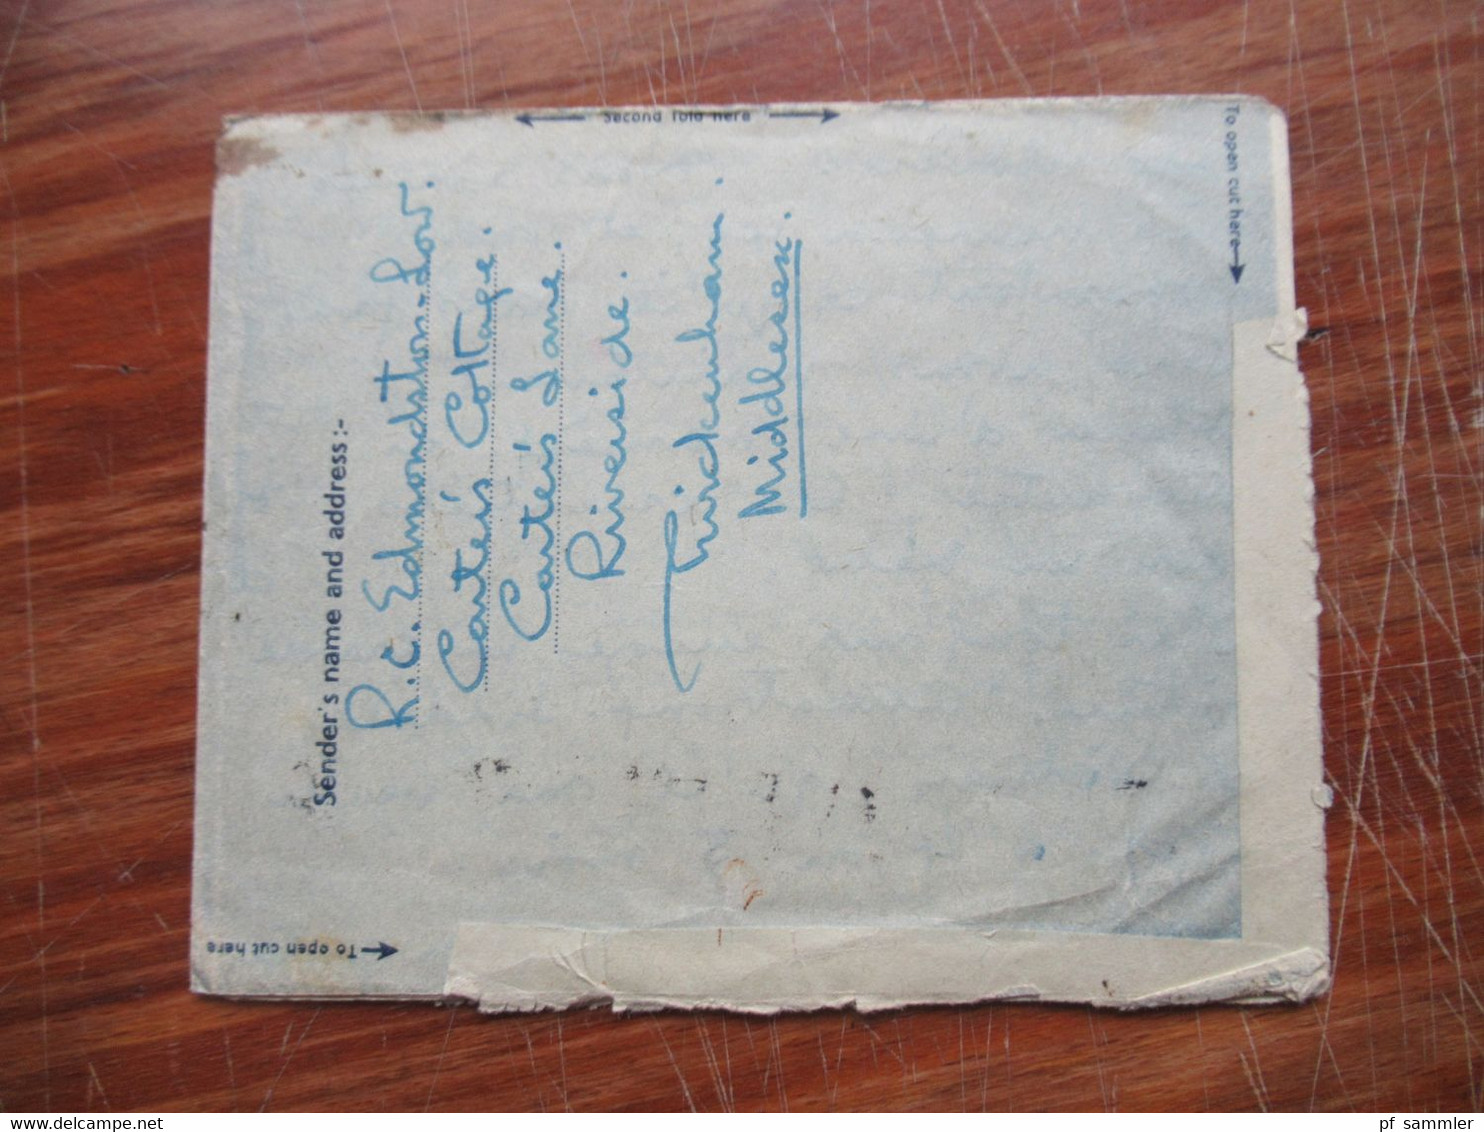 Second fold here
To open cut here
Sender's name and address :-
R. C. Edmondston-Low.
Carter's Cottage.
Carter's Lane.
Riverside.
Twickenham.
Middlesex.
To open cut here
pf sammler
delcampe.net